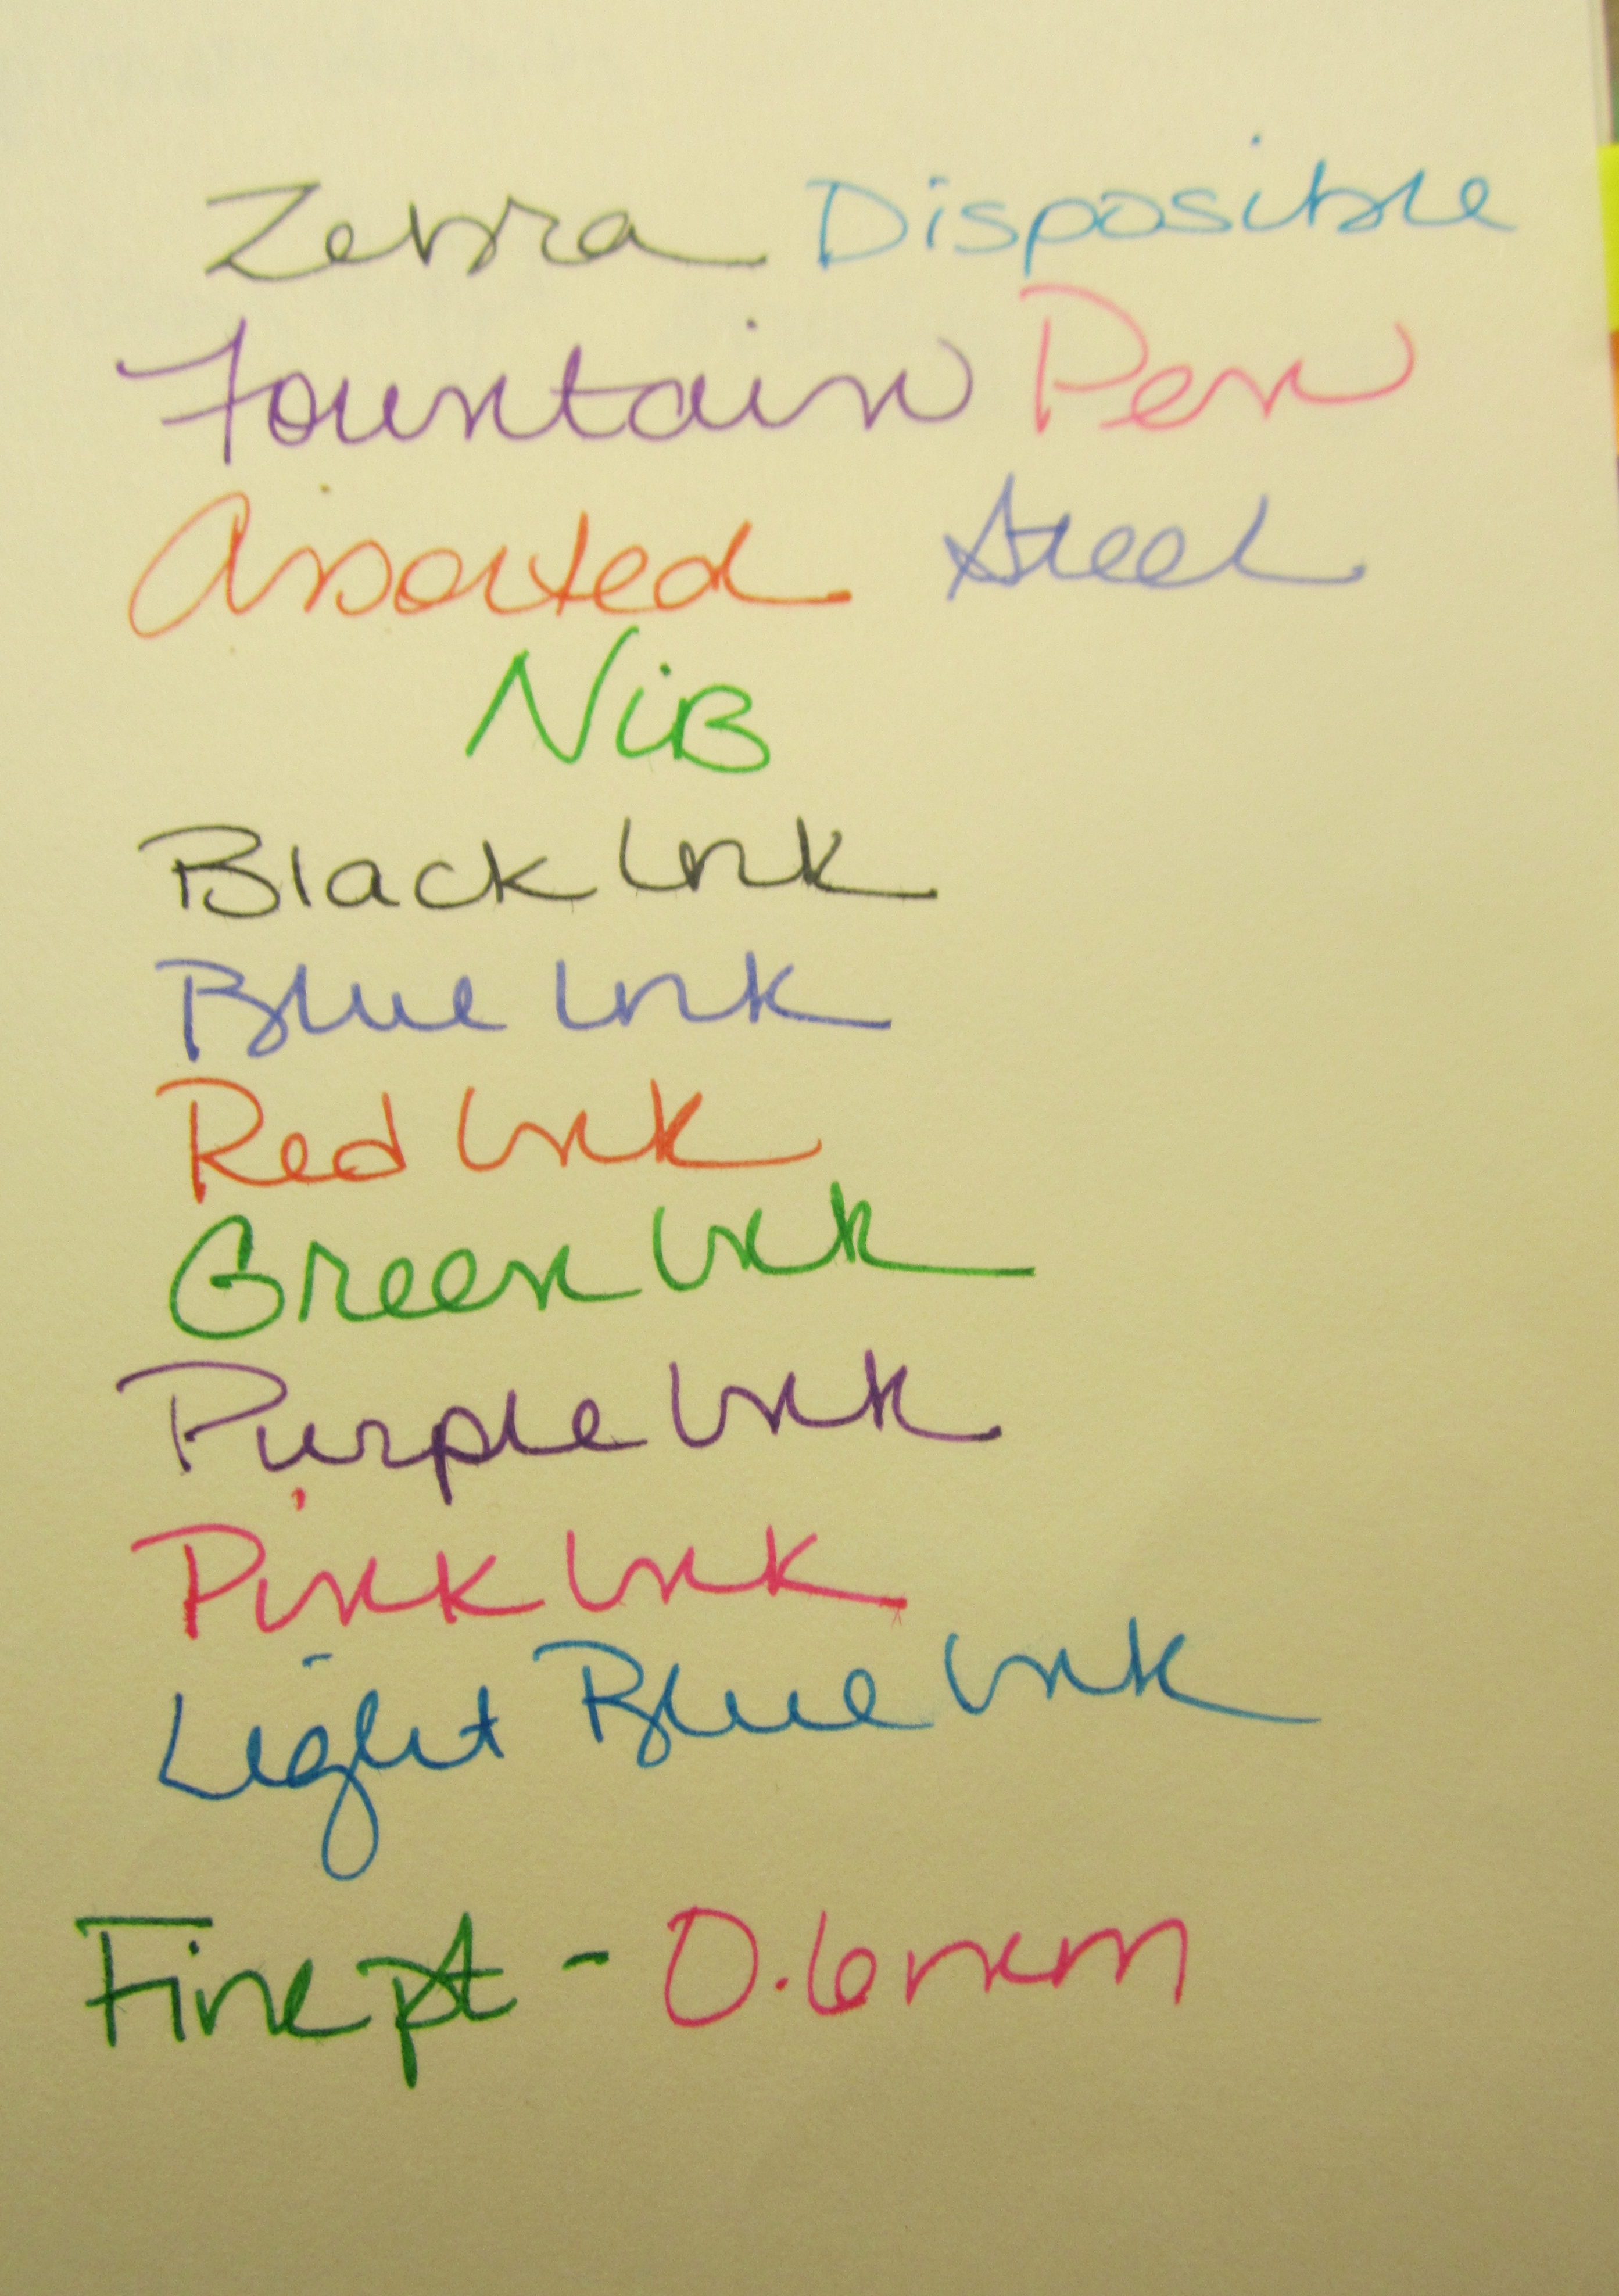 Zebra Disposible
Fountain Pen
Assorted Steel
NiB
Black Ink
Blue Ink
Red Ink
Green Ink
Purple Ink
Pink Ink
Light Blue Ink
Fine pt - 0.6mm